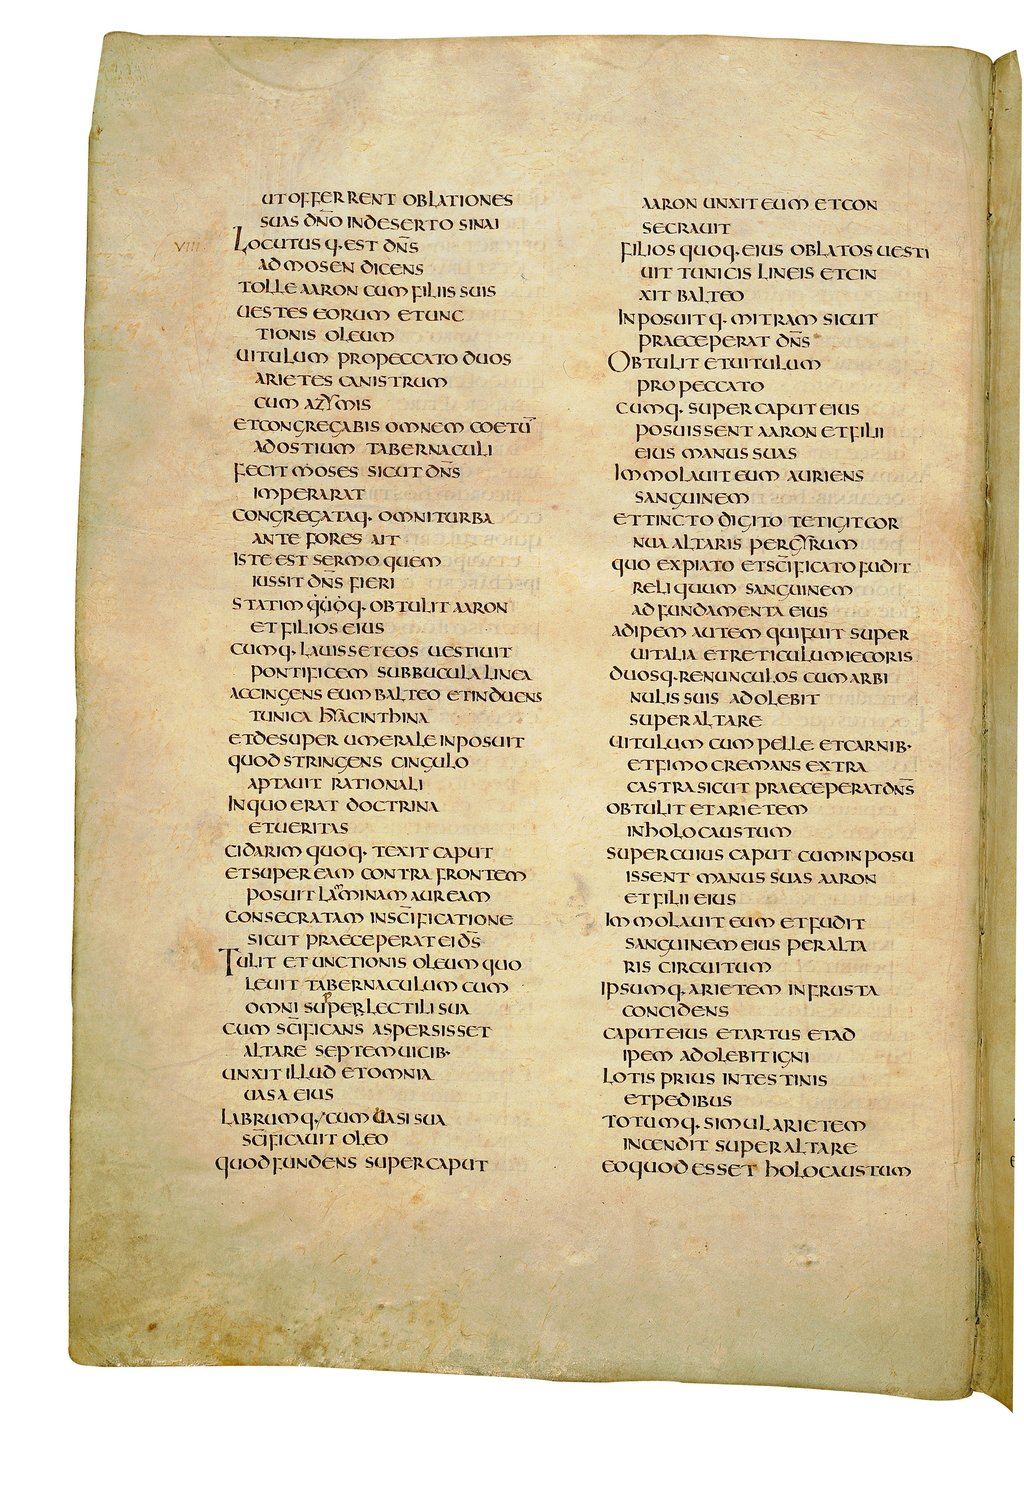 UT OFFERRENT OBLATIONES
SUAS DÑO IN DESERTO SINAI
VIII LOCUTUSQ· EST DÑS
AD MOSEN DICENS
TOLLE AARON CUM FILIIS SUIS
UESTES EORUM ET UNC
TIONIS OLEUM
UITULUM PRO PECCATO DUOS
ARIETES CANISTRUM
CUM AZYMIS
ET CONGREGABIS OMNEM COETŪ
AD OSTIUM TABERNACULI
FECIT MOSES SICUT DÑS
IMPERARAT
CONGREGATAQ· OMNI TURBA
ANTE FORES AIT
ISTE EST SERMO QUEM
IUSSIT DÑS FIERI
STATIM Q̇U̇ȮQ· OBTULIT AARON
ET FILIOS EIUS
CUMQ· LAUISSET EOS UESTIUIT
PONTIFICEM SUBBUCULA LINEA
ACCINGENS EUM BALTEO ET INDUENS
TUNICA HYACINTHINA
ET DESUPER UMERALE INPOSUIT
QUOD STRINGENS CINGULO
APTAUIT RATIONALI
IN QUO ERAT DOCTRINA
ET UERITAS
CIDARIM QUOQ· TEXIT CAPUT
ET SUPER EAM CONTRA FRONTEM
POSUIT LAMINAM AUREAM
CONSECRATAM IN SCĪFICATIONE
SICUT PRAECEPERAT EI D̄S
TULIT ET UNCTIONIS OLEUM QUO
LEUIT TABERNACULUM CUM
OMNI SUPERLECTILI SUA
CUM SCĪFICANS ASPERSISSET
ALTARE SEPTEM UICIB·
UNXIT ILLUD ET OMNIA
UASA EIUS
LABRUMQ·/CUM UASI SUA
SCĪFICAUIT OLEO
QUOD FUNDENS SUPER CAPUT
AARON UNXIT EUM ET CON
SECRAUIT
FILIOS QUOQ· EIUS OBLATOS UESTI
UIT TUNICIS LINEIS ET CIN
XIT BALTEO
INPOSUITQ· MITRAM SICUT
PRAECEPERAT DÑS
OBTULIT ET UITULUM
PRO PECCATO
CUMQ· SUPER CAPUT EIUS
POSUISSENT AARON ET FILII
EIUS MANUS SUAS
IMMOLAUIT EUM AURIENS
SANGUINEM
ET TINCTO DIGITO TETIGIT COR
NUA ALTARIS PER GYRUM
QUO EXPIATO ET SCĪFICATO FUDIT
RELIQUUM SANGUINEM
AD FUNDAMENTA EIUS
ADIPEM AUTEM QUI FUIT SUPER
UITALIA ET RETICULUM IECORIS
DUOSQ· RENUNCULOS CUM ARBI
NULIS SUIS ADOLEBIT
SUPER ALTARE
UITULUM CUM PELLE ET CARNIB·
ET FIMO CREMANS EXTRA
CASTRA SICUT PRAECEPERAT DÑS
OBTULIT ET ARIETEM
IN HOLOCAUSTUM
SUPER CUIUS CAPUT CUM INPOSU
ISSENT MANUS SUAS AARON
ET FILII EIUS
IMMOLAUIT EUM ET FUDIT
SANGUINEM EIUS PER ALTA
RIS CIRCUITUM
IPSUMQ· ARIETEM IN FRUSTA
CONCIDENS
CAPUT EIUS ET ARTUS ET AD
IPEM ADOLEBIT IGNI
LOTIS PRIUS INTESTINIS
ET PEDIBUS
TOTUMQ· SIMUL ARIETEM
INCENDIT SUPER ALTARE
EO QUOD ESSET HOLOCAUSTUM